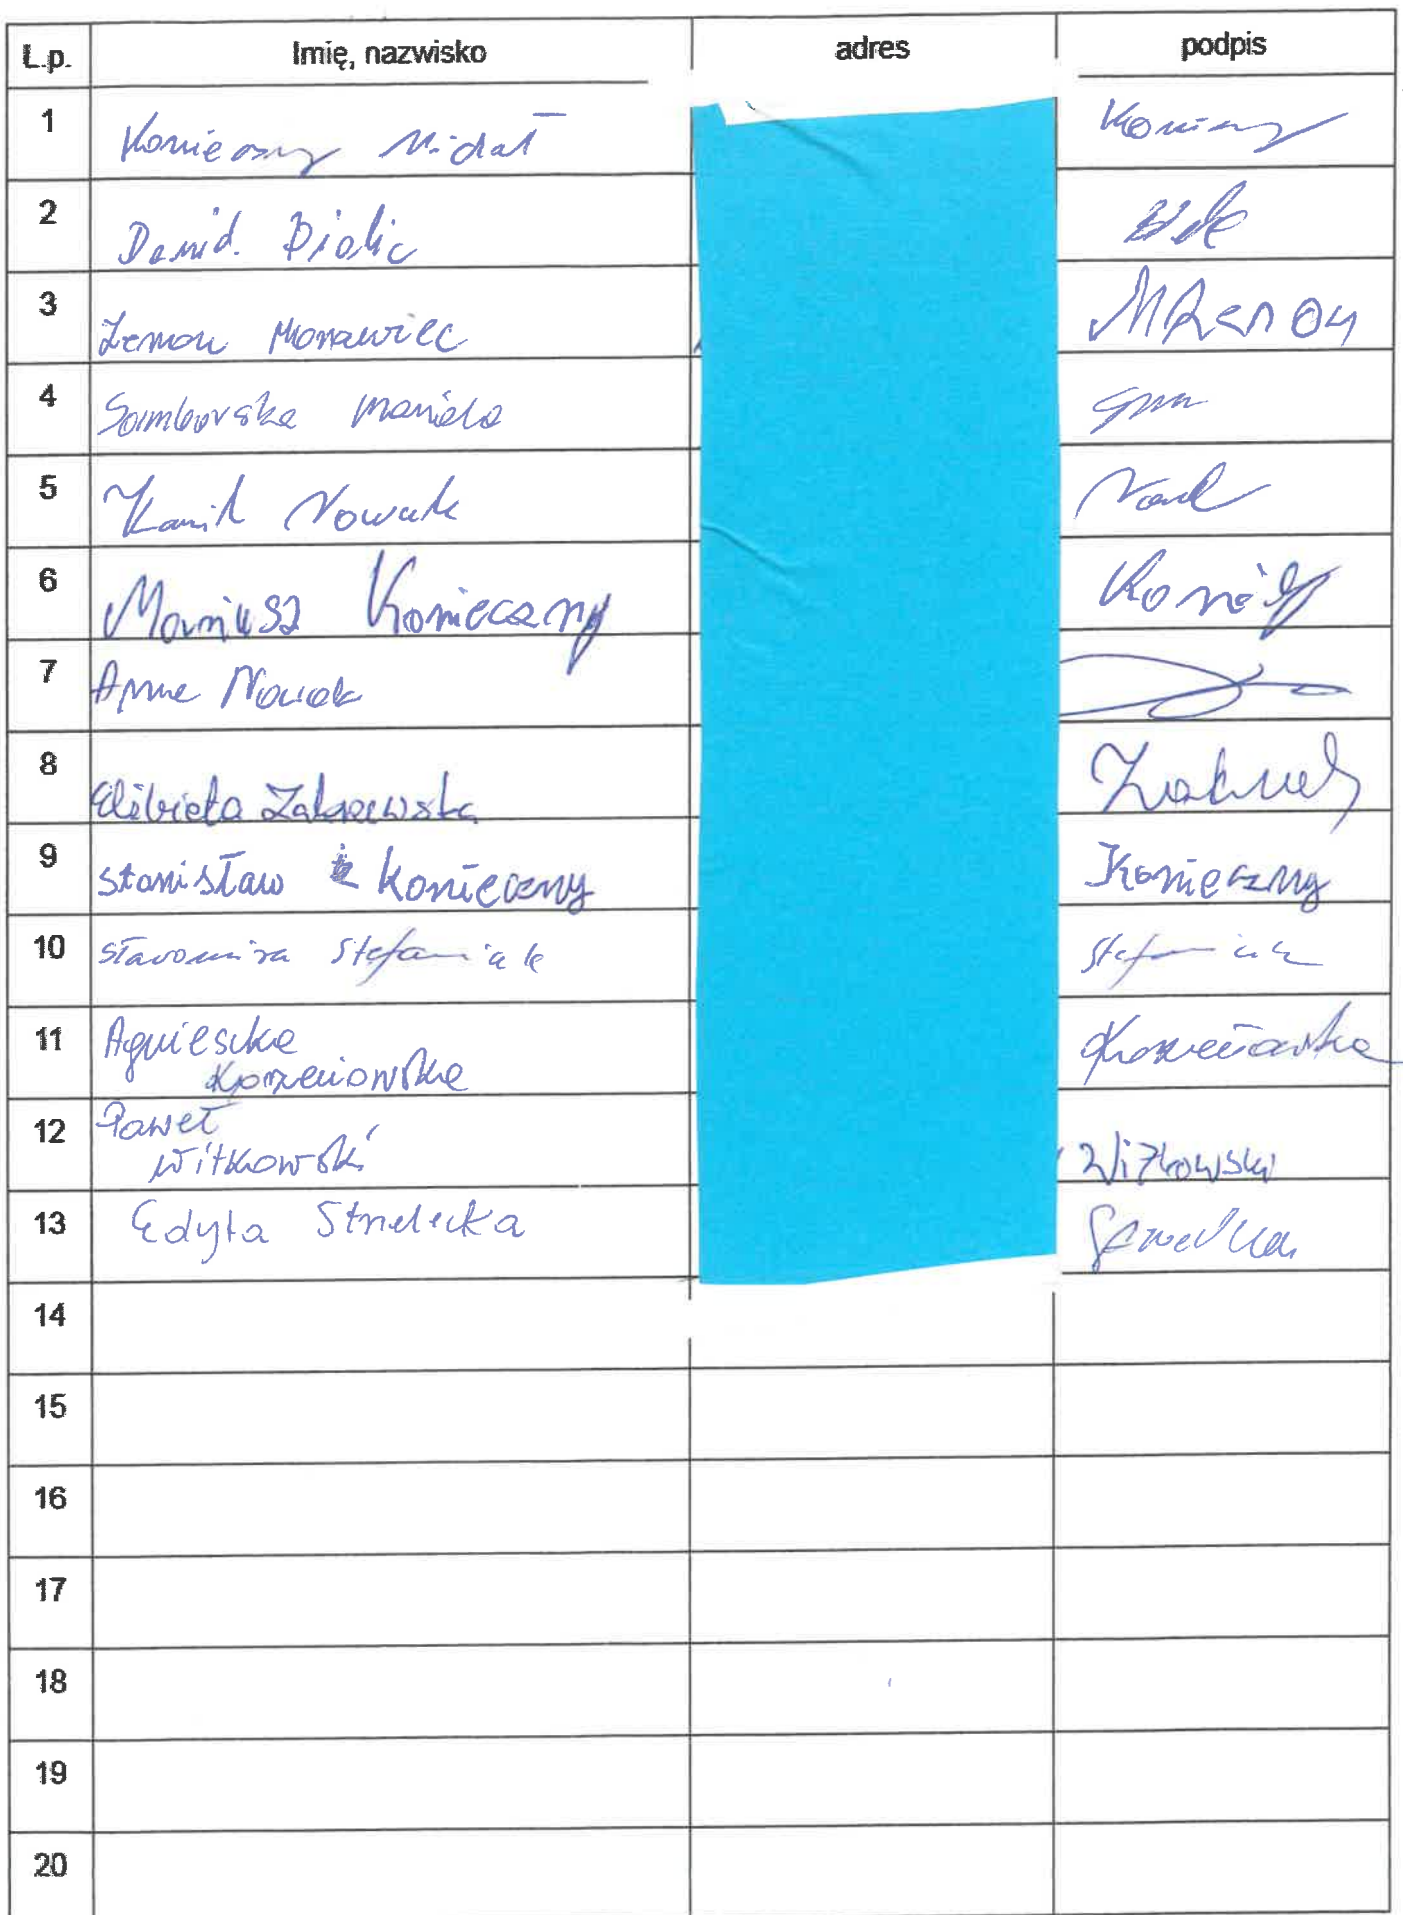 L.p. Imię, nazwisko adres podpis
1 Konieczny Michał
2 Dawid Bialic
3 Zenon Morawiec
4 Samborska Mariola
5 Kamil Nowak
6 Mariusz Konieczny
7 Anna Nowak
8 Elżbieta Zakrzewska
9 Stanisław Konieczny Konieczny
10 Sławomira Stefaniak Stefaniak
11 Agnieszka
Korzeniowska
12 Paweł
Witkowski Witkowski
13 Edyta Strzelecka
14
15
16
17
18
19
20